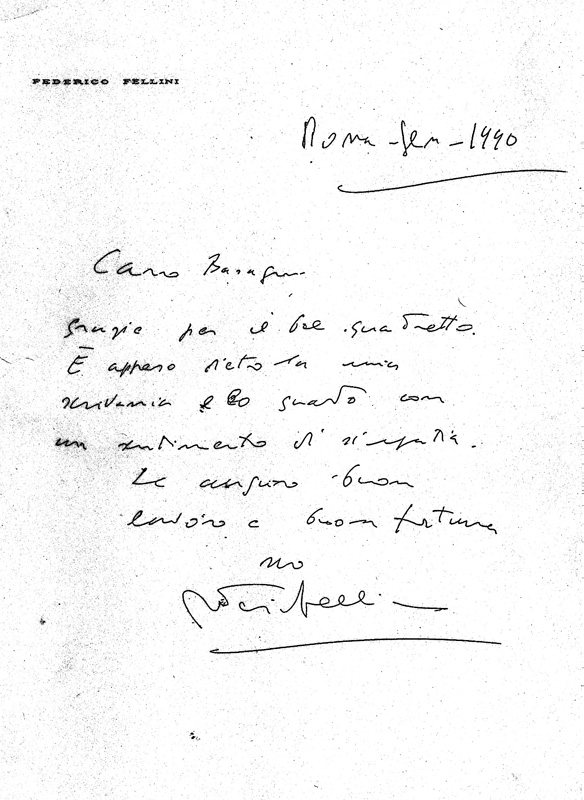 FEDERICO FELLINI
Roma - Gen - 1990
Caro
grazie per il bel quadretto.
È appeso dietro la mia
scrivania e lo guardo con
un sentimento di simpatia.
Le auguro buon
lavoro e buona fortuna
suo